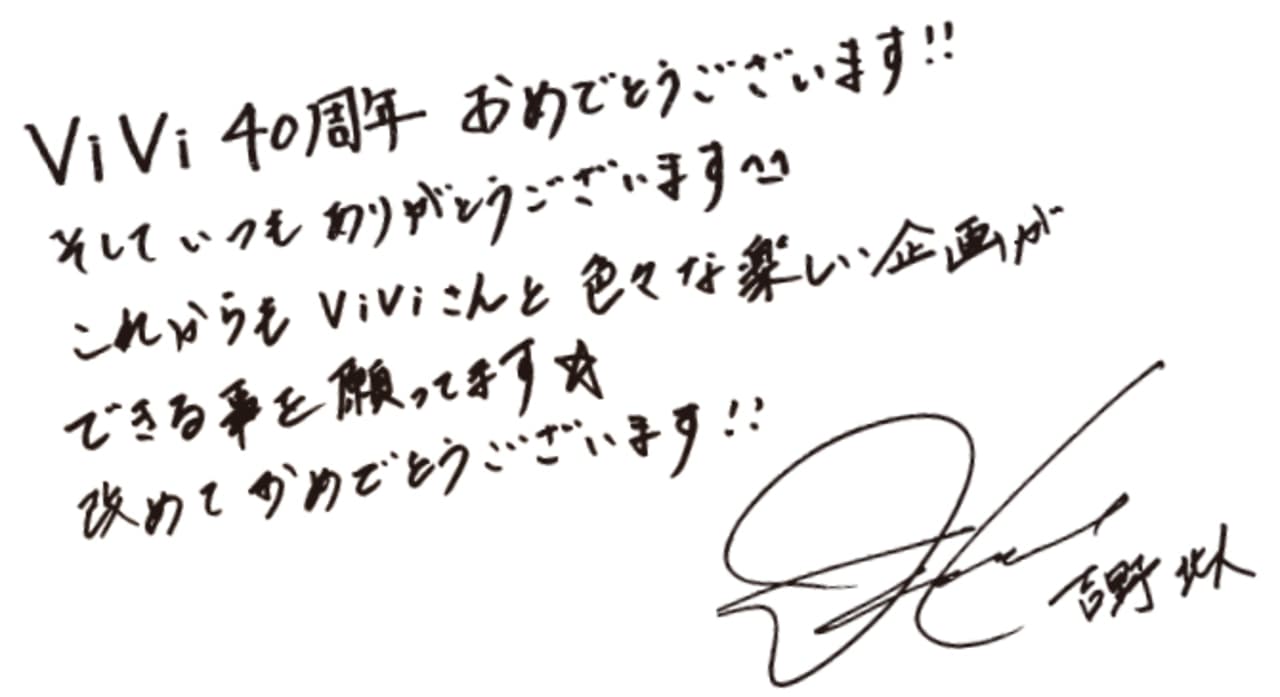 ViVi 40周年 おめでとうございます!!
そしていつもありがとうございます^_^
これからも ViViさんと 色々な楽しい企画が
できる事を願ってます☆
改めておめでとうございます!!
吉野 北人